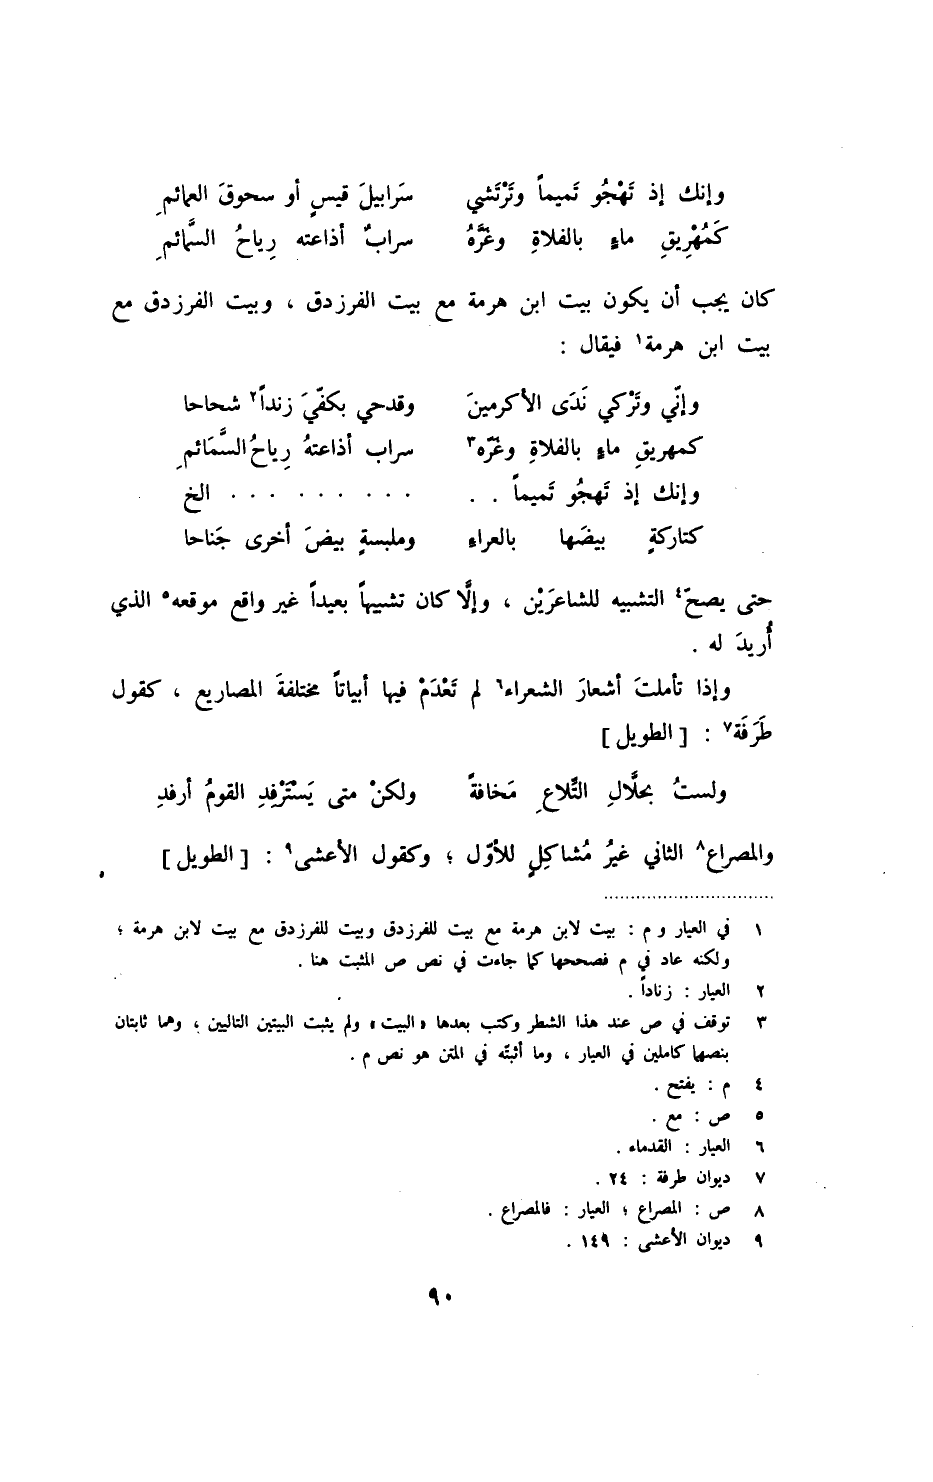 وإنك إذ تَهْجُو تَميماً وتَرْتَشي سَرابيلَ قيسٍ أو سحوقَ العمائمِ
كَمُهْرِيقِ ماءٍ بالفلاةِ وغَرَّهُ سرابٌ أذاعته رِياحُ السَّمائمِ
كان يجب أن يكون بيت ابن هرمة مع بيت الفرزدق ، وبيت الفرزدق مع
بيت ابن هرمة١ فيقال :
وإنّي وتَرْكي نَدَى الأكرمينَ وقدحي بكفّيَ زنداً٢ شحاحا
كمهريقِ ماءٍ بالفلاةِ وغرّه٣ سراب أذاعتهُ رِياحُ السَّمَائمِ
وإنك إذ تَهجُو تَميماً . . . . . . . . . . . الخ
كتاركةٍ بيضَها بالعراءِ وملبسةٍ بيضَ أخرى جَناحا
حتى يصحّ٤ التشبيه للشاعرَيْن ، وإلَّا كان تشبيهاً بعيداً غير واقع موقعه٥ الذي
أُريدَ له .
وإذا تأملتَ أشعارَ الشعراء٦ لم تَعْدَمْ فيها أبياتاً مختلفةَ المصاريع ، كقول
طَرَفَة٧ : [ الطويل ]
ولستُ بحلَّالِ التِّلاعِ مَخافةً ولكنْ متى يَسْتَرْفِدِ القومُ أرفدِ
والمصراع٨ الثاني غيرُ مُشاكِلٍ للأوّل ؛ وكقول الأعشى٩ : [ الطويل ]
١ في العيار و م : بيت لابن هرمة مع بيت للفرزدق وبيت للفرزدق مع بيت لابن هرمة ؛
ولكنه عاد في م فصححها كما جاءت في نص ص المثبت هنا .
٢ العيار : زناداً .
٣ توقف في ص عند هذا الشطر وكتب بعدها «البيت» ولم يثبت البيتين التاليين ، وهما ثابتان
بنصها كاملين في العيار ، وما أثبتّه في المتن هو نص م .
٤ م : يفتح .
٥ ص : مع .
٦ العيار : القدماء .
٧ ديوان طرفة : ٢٤ .
٨ ص : المصراع ؛ العيار : فالمصراع .
٩ ديوان الأعشى : ١٤٩ .
٩٠